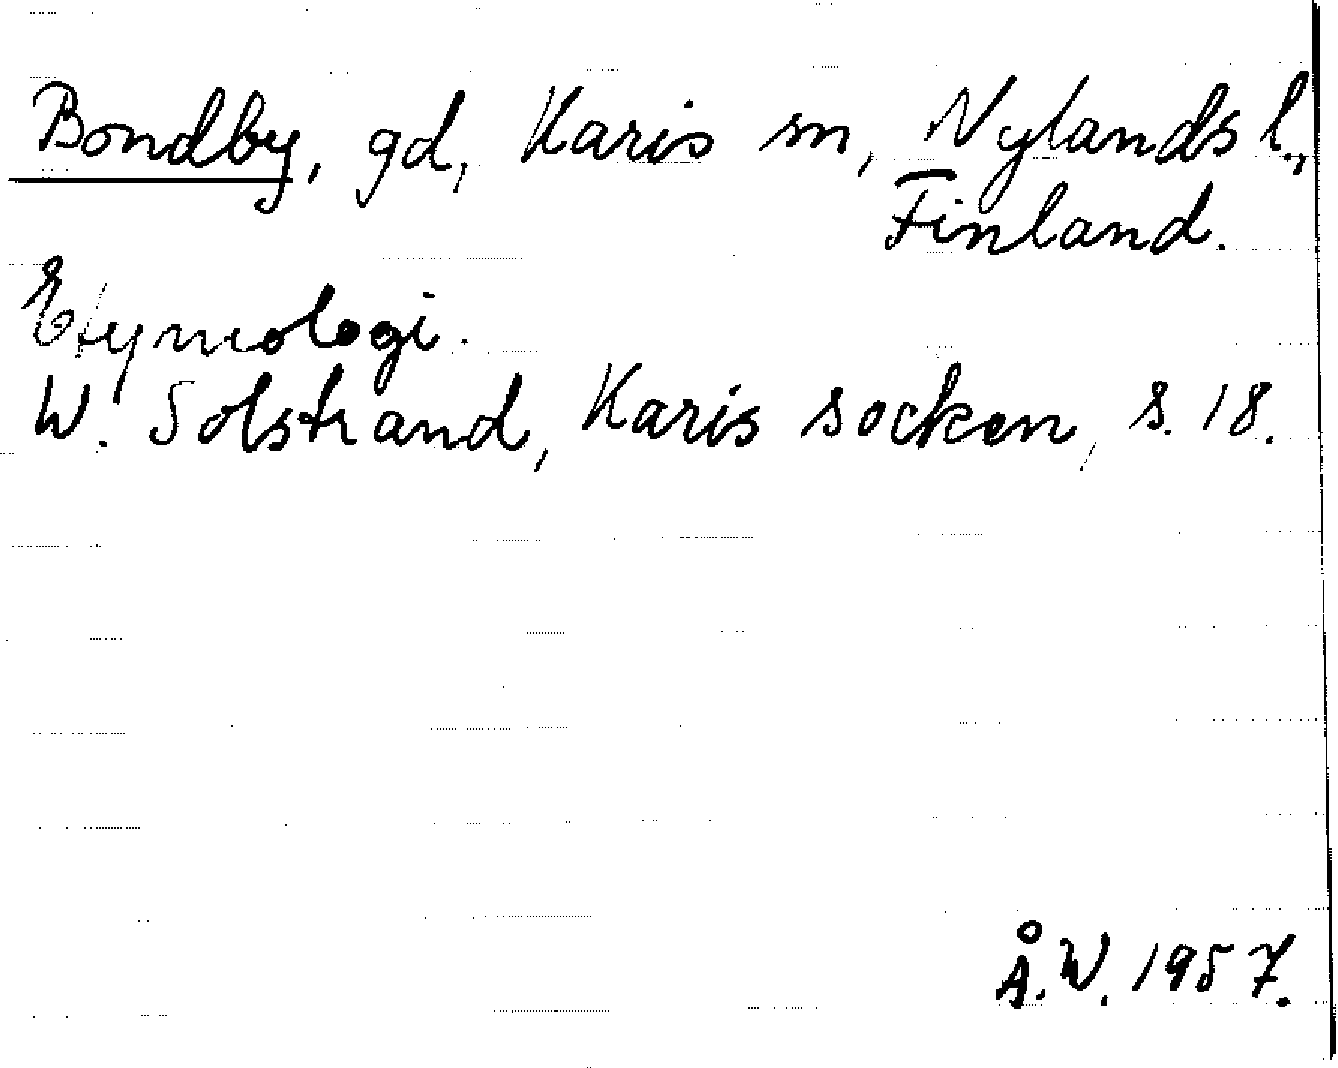 Bondby, gd, Karis sn, Nylands l.,
Finland.
Etymologi.
W. Solstrand, Karis socken, s. 18.
Å.W. 1957.